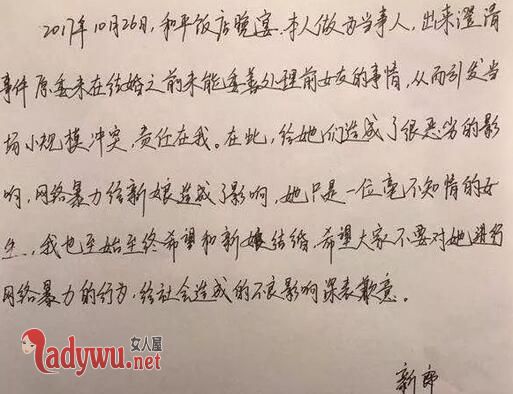 2017年10月26日,和平饭店晚宴.本人做为当事人,出来澄清
事件原委来在结婚之前未能妥善处理前女友的事情,从而引发当
场小规模冲突,责任在我。在此,给她们造成了很恶劣的影
响,网络暴力给新娘造成了影响,她只是一位毫不知情的女
生,我也至始至终希望和新娘结婚.希望大家不要对她进行
网络暴力的行为,给社会造成的不良影响深表歉意。
女人屋
ladywu.net
新郎